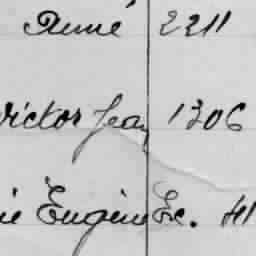 René 2211
Victor Jean 1306
Eugène Ex. 41